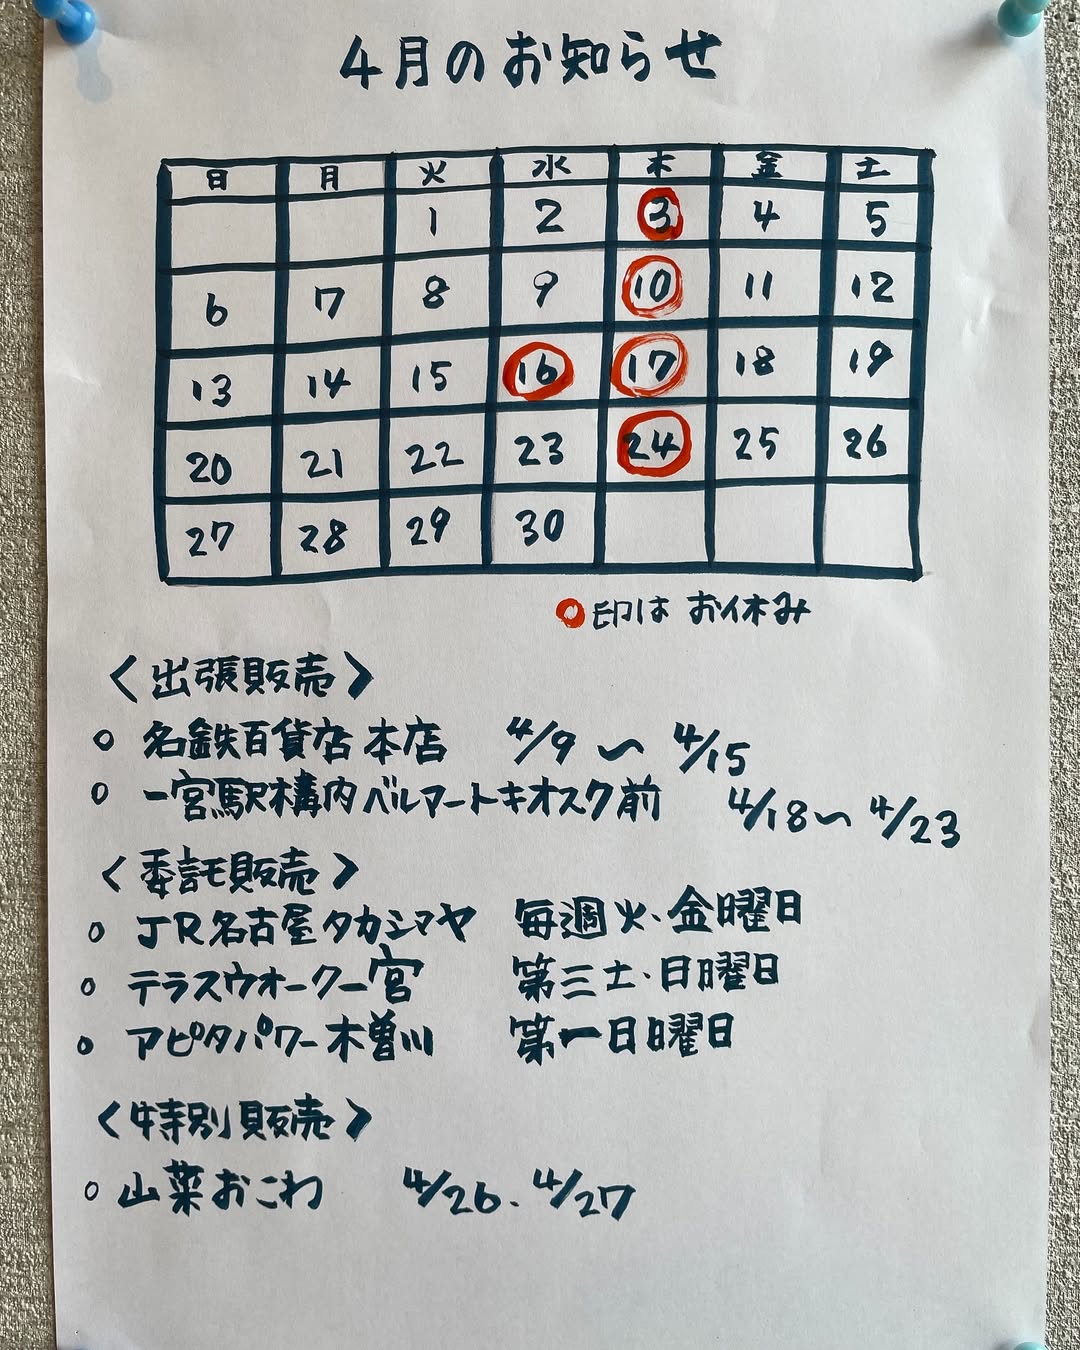 4月のお知らせ
日 月 火 水 木 金 土
1 2 3 4 5
6 7 8 9 10 11 12
13 14 15 16 17 18 19
20 21 22 23 24 25 26
27 28 29 30
○印は お休み
〈出張販売〉
○ 名鉄百貨店 本店 4/9 〜 4/15
○ 一宮駅構内 ベルマートキオスク前 4/18〜 4/23
〈委託販売〉
○ JR名古屋タカシマヤ 毎週火・金曜日
○ テラスウオーク一宮 第三土・日曜日
○ アピタパワー木曽川 第一日曜日
〈特別販売〉
○ 山菜おこわ 4/26. 4/27